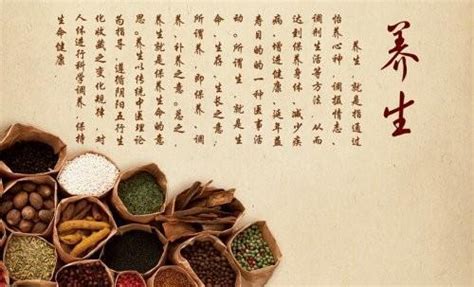 养生
养生，就是指通过
怡养心神，调摄情志、
调剂生活等方法，从而
达到保养身体、减少疾
病、增进健康、延年益
寿目的的一种医事活
动。所谓生，就是生
命、生存、生长之意；
所谓养，即保养、调
养、补养之意。总之，
养生就是保养生命的意
思。养生以传统中医理论
为指导，遵循阴阳五行生
化收藏之变化规律，对
人体进行科学调养，保持
生命健康